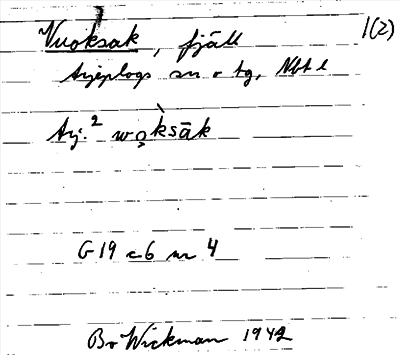 Vuoksak, fjäll 1(2)
Arjeplogs sn o tg, Nbt l
Arj.² wò̦ksāk
G 19 c 6 nr 4
Bo Wickman 1942